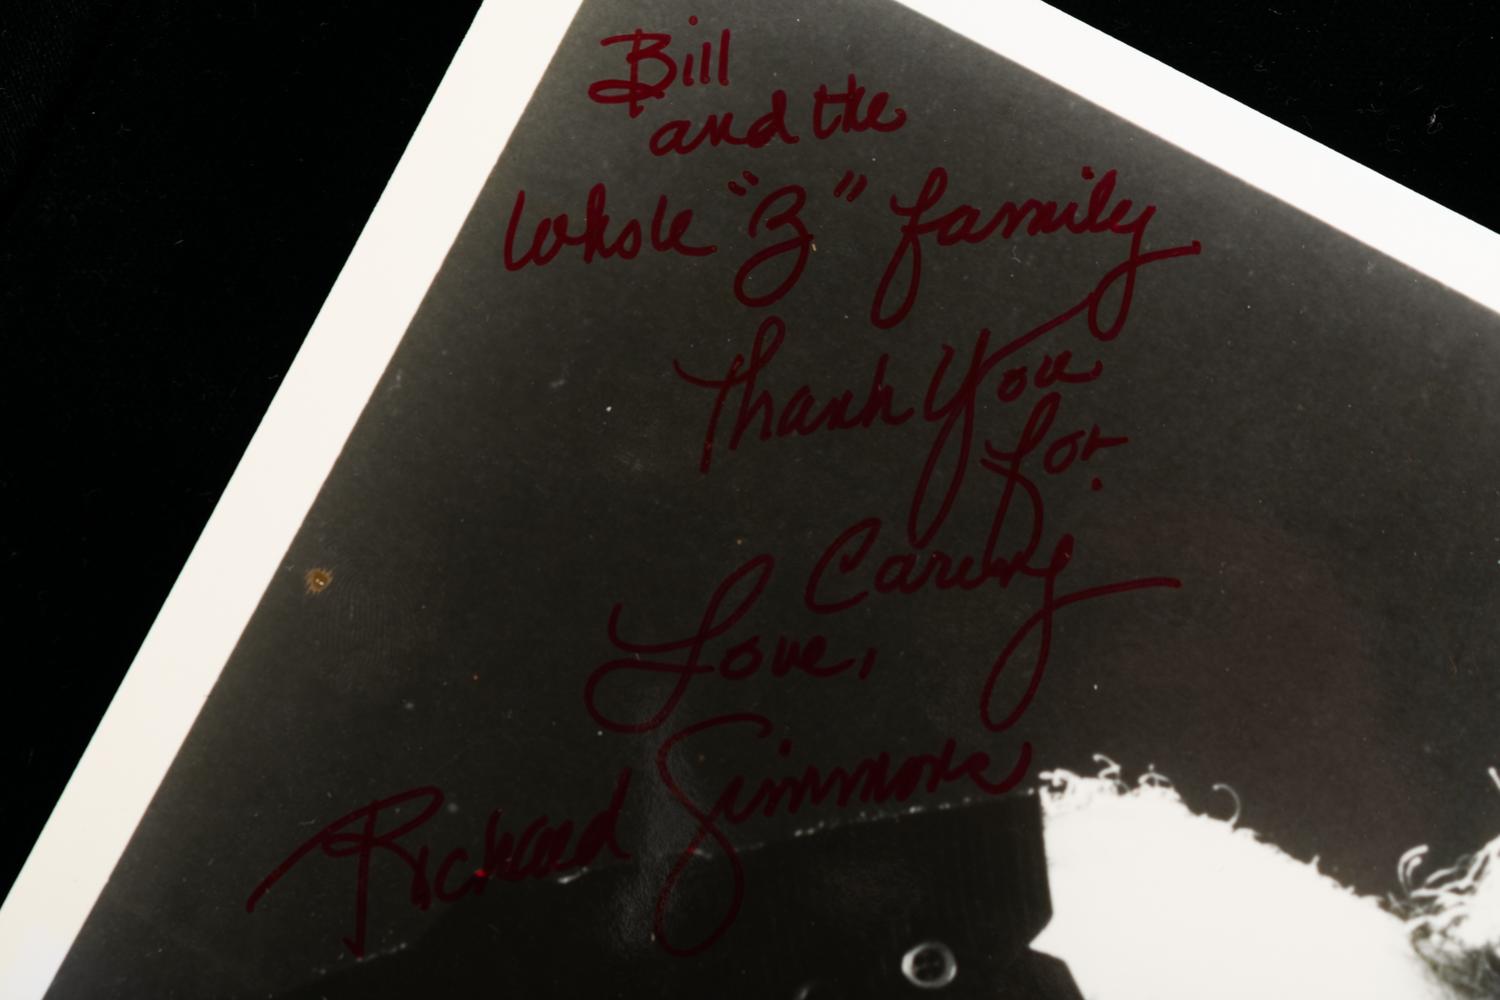 Bill
and the
Whole "Z" family
Thank You
for
Caring
Love,
Richard Simmons